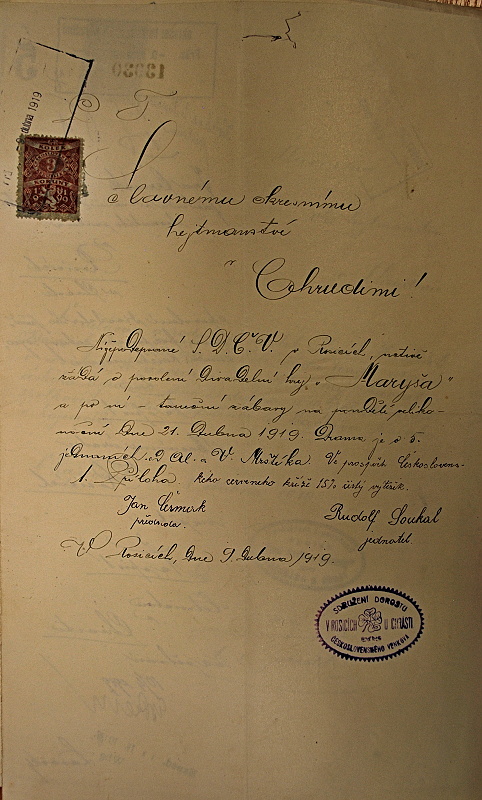 dubna 1919
3
Slavnému okresnímu
hejtmanství
v
Chrudimi!
Nížepodepsané S.D.Č.V. v Rosicích,
žádá o povolení divadelní hry „Maryša"
a po ní - taneční zábavy na pondělí veliko-
noční dne 21. dubna 1919. Drama je o 5.
jednáních od Al. a V. Mrštíka. Ve prospěch Českosloven-
1. Příloha. kého červeného kříže 15% čistý výtěžek.
Jan
předseda.
Rudolf Soukal
jednatel.
V Rosicích, dne 9. dubna 1919.
SDRUŽENÍ DOROSTU
V ROSICÍCH U CHRASTI
ČESKOSLOVENSKÉHO VENKOVA